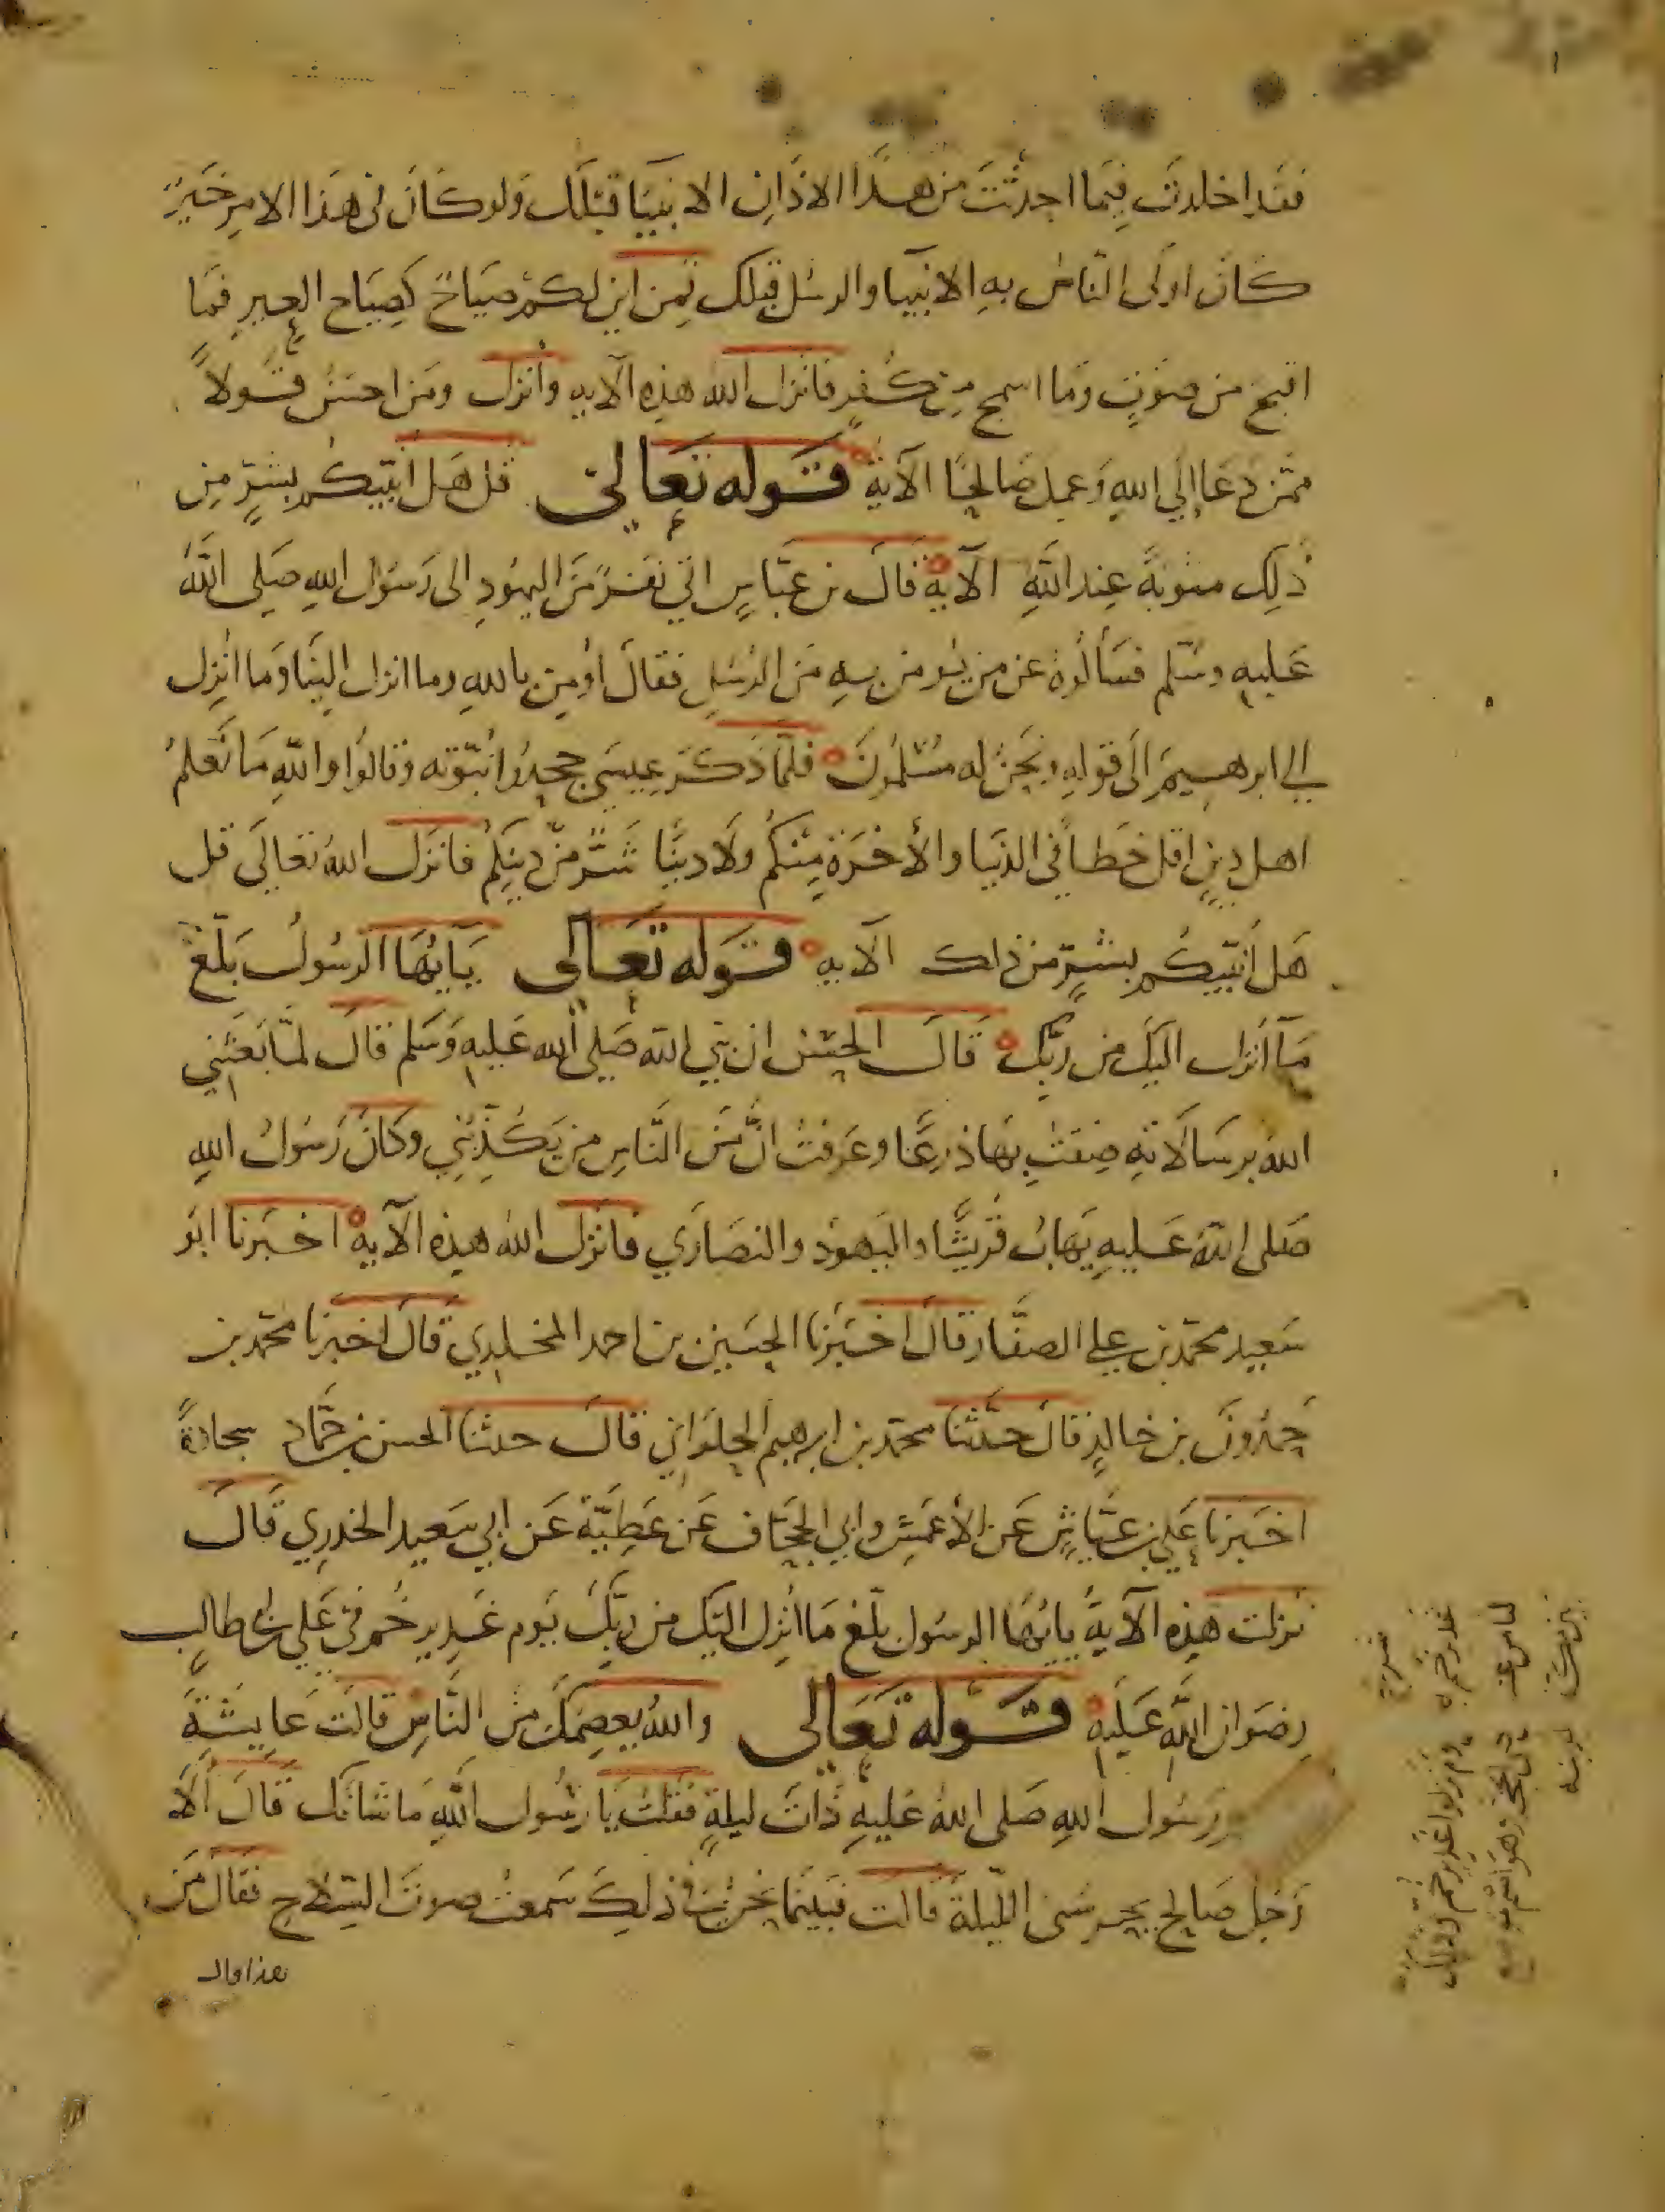 فقد اخلدت فيما احدثت من هذا الاذان الانبيا قبلك ولو كان في هذا الامر خير
كان اولى الناس به الانبيا والرسل قبلك فمن اين لكم صياح كصياح العير فما
اقبح من صوت وما اسمج من كفر فانزل الله هذه الآيه وأنزل ومن احسن قولاً
ممن دعا الي الله وعمل صالحًا الآية قوله تعالى قل هل انبيكم بشرٍّ من
ذلك مثوبةً عند الله الآية قال بن عبّاسٍ اتي نفرٌ من اليهود الى رسول الله صلى الله
عليه وسلم فسألوه عن من يومن به من الرسل فقال أومن بالله وما انزل الينا وما انزل
الي ابرهيم الى قوله ونحن له مسلمون فلمّا ذكر عيسى جحدوا نبوّته وقالوا والله ما نعلم
اهل دينٍ اقل حظا في الدنيا والأخرة منكم ولا دينًا شرّ من دينكم فانزل الله تعالى قل
هل أنبيكم بشرٍّ من ذلك الآيه قوله تعالى يايها الرسول بلّغ
مآ أنزل اليك من ربّك قال الحسن ان نبي الله صلى الله عليه وسلم قال لمّا بعثني
الله برسالاته ضقت بها ذرعًا وعرفت انّ من النّاس من يكذّبني وكان رسول الله
صلى الله عليه يهاب قريشًا واليهود والنصاري فانزل الله هذه الآية اخبرنا ابو
سعيد محمد بن علي الصفّار قال اخبرنا الحسين بن احمد المخلدي قال اخبرنا محمد بن
حمدون بن خالدٍ قال حدّثنا محمد بن ابرهيم الحلواني قال حدثنا الحسن بن حمّاد سجادةً
اخبرنا علي بن عيّاشٍ عن الأعمش وابي الجحّاف عن عطيّة عن ابي سعيد الخدري قال
نزلت هذه الآية يايها الرسول بلّغ ما انزل اليك من ربّك يوم غدير خم في علي بن ابي طالب
رضوان الله عليه قوله تعالى والله يعصمك من النّاس قالت عايشة
رسول الله صلى الله عليه ذات ليلةٍ فقلت يا رسول الله ما شانك قال ألا
رجل صالح يحرسنى الليلة قالت فبينما نحن في ذلك سمعت صوت السلاح فقال من
هذا قال